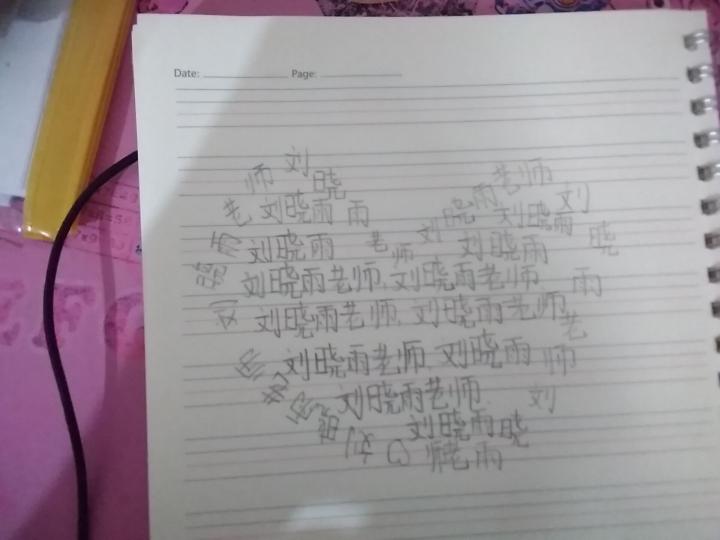 Date: Page:
师 刘 晓
老 刘晓雨 雨 刘 晓 雨 老师
雨 刘晓雨 老 师 刘晓雨 刘
晓 刘晓雨 晓
刘晓雨老师 刘晓雨老师 雨
刘 刘晓雨老师 刘晓雨老师 老
师 刘晓雨老师 刘晓雨 师
刘晓雨老师 刘
刘晓雨 晓
师老 雨